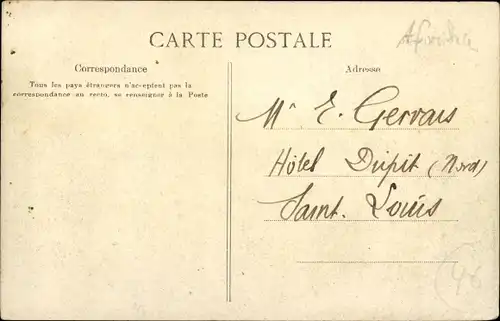 CARTE POSTALE
Correspondance
Tous les pays étrangers n'acceptent pas la
correspondance au recto, se renseigner à la Poste
Adresse
Mr E. Gervais
Hôtel Dupit (Nord)
Saint. Louis